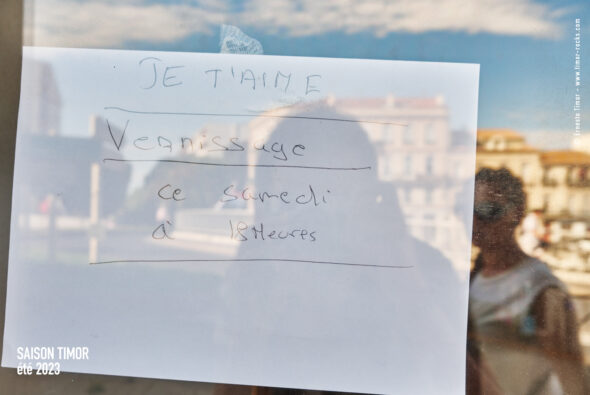 JE T'AIME
Vernissage
ce samedi
à 18Heures
SAISON TIMOR
été 2023
Ernesto Timor - www.timor-rocks.com